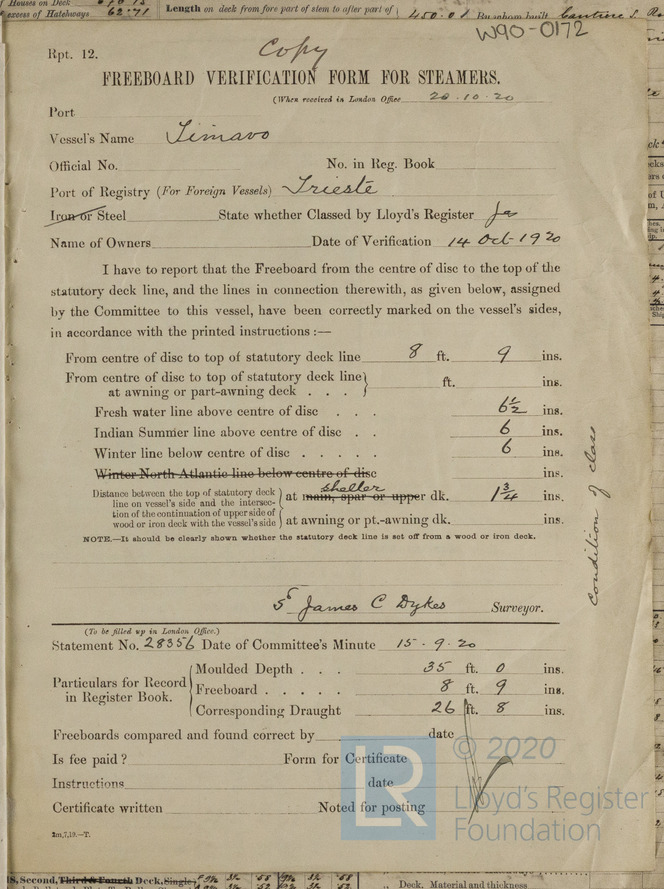 Houses on Deck
excess of Hatchways 62.71
Length on deck from fore part of stem to after part of 450.01
W90-0172
Rpt. 12.
Copy
FREEBOARD VERIFICATION FORM FOR STEAMERS.
(When received in London Office 20.10.20
Port
Vessel's Name Timavo
Official No. No. in Reg. Book
Port of Registry (For Foreign Vessels) Trieste
Iron or Steel State whether Classed by Lloyd's Register
Name of Owners Date of Verification 14 Oct 1920
I have to report that the Freeboard from the centre of disc to the top of the
statutory deck line, and the lines in connection therewith, as given below, assigned
by the Committee to this vessel, have been correctly marked on the vessel's sides,
in accordance with the printed instructions :—
From centre of disc to top of statutory deck line 8 ft. 9 ins.
From centre of disc to top of statutory deck line
at awning or part-awning deck . . . ft. ins.
Fresh water line above centre of disc . . . 6½ ins.
Indian Summer line above centre of disc . . 6 ins.
Winter line below centre of disc . . . . . 6 ins.
Winter North Atlantic line below centre of disc ins.
shelter
Distance between the top of statutory deck
line on vessel's side and the intersec-
tion of the continuation of upper side of
wood or iron deck with the vessel's side
at main, spar or upper dk. 1¾ ins.
at awning or pt.-awning dk. ins.
NOTE.—It should be clearly shown whether the statutory deck line is set off from a wood or iron deck.
condition of class
James C Dykes Surveyor.
(To be filled up in London Office.)
Statement No. 28356 Date of Committee's Minute 15.9.20
Particulars for Record
in Register Book.
Moulded Depth . . . 35 ft. 0 ins.
Freeboard . . . . . 8 ft. 9 ins.
Corresponding Draught 26 ft. 8 ins.
Freeboards compared and found correct by date
Is fee paid ? Form for Certificate
Instructions date
Certificate written Noted for posting
2m,7,19.—T.
LR
© 2020
Lloyd's Register
Foundation
Second, Third & Fourth Deck, Single
Deck. Material and thickness